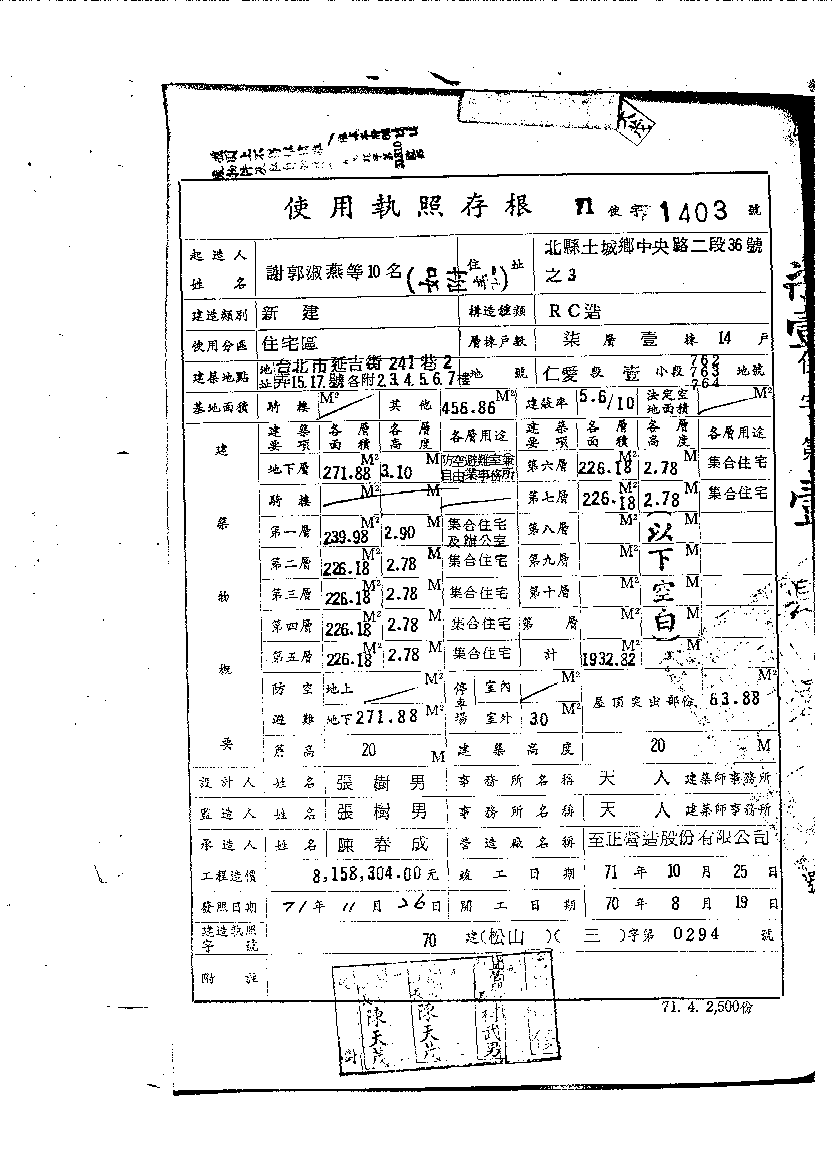 使用執照存根 71 使字 1403 號
起造人姓名 謝郭淑燕等10名(如附 ) 住址 北縣土城鄉中央路二段36號之3
建造類別 新建 構造種類 RC造
使用分區 住宅區 層棟戶數 柒層壹棟14戶
建築地點 地址 台北市延吉街241巷2弄15.17.號各附2.3.4.5.6.7樓 地號 仁愛段壹小段 762 763 764 地號
基地面積 騎樓 M² 其他 456.86 M² 建蔽率 5.6/10 法定空地面積 M²
建築物概要
建築要項 各層面積 各層高度 各層用途 建築要項 各層面積 各層高度 各層用途
地下層 271.88 M² 3.10 M 防空避難室兼自由業事務所 第六層 226.18 M² 2.78 M 集合住宅
騎樓 M² M 第七層 226.18 M² 2.78 M 集合住宅
第一層 239.98 M² 2.90 M 集合住宅及辦公室 第八層 M² M
第二層 226.18 M² 2.78 M 集合住宅 第九層 M² M
第三層 226.18 M² 2.78 M 集合住宅 第十層 M² M
第四層 226.18 M² 2.78 M 集合住宅 第 層 M² M
(以下空白)
第五層 226.18 M² 2.78 M 集合住宅 計 1932.82 M²
防空避難 地上 M² 停車場 室內 M² 屋頂突出部份 63.88 M²
地下 271.88 M² 室外 30 M²
簷高 20 M 建築高度 20 M
設計人 姓名 張樹男 事務所名稱 天人 建築師事務所
監造人 姓名 張樹男 事務所名稱 天人 建築師事務所
承造人 姓名 陳春成 營造廠名稱 至正營造股份有限公司
工程造價 8,158,304.00元 竣工日期 71年10月25日
發照日期 71年11月26日 開工日期 70年8月19日
建造執照字號 70 建(松山)(三)字第 0294 號
附註
陳天茂
陳天茂
林武男
71. 4. 2,500份